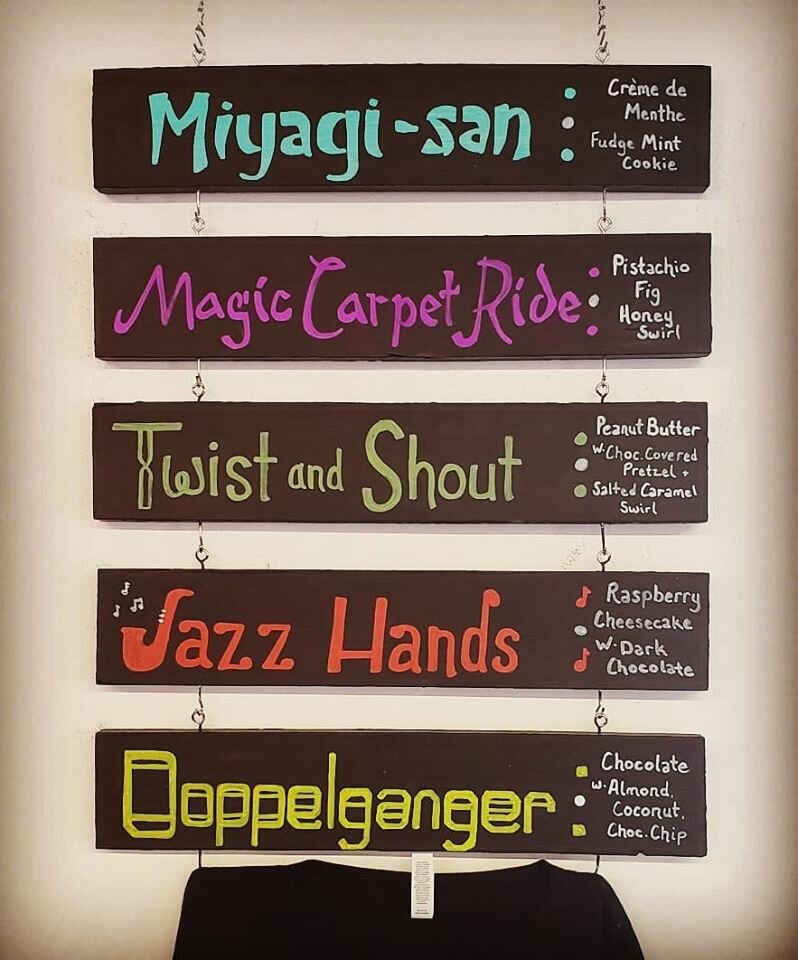 Miyagi-san
Crème de
Menthe
Fudge Mint
Cookie
Magic Carpet Ride
Pistachio
Fig
Honey
Swirl
Twist and Shout
Peanut Butter
w. Choc. Covered
Pretzel +
Salted Caramel
Swirl
Jazz Hands
Raspberry
Cheesecake
w. Dark
Chocolate
Doppelganger
Chocolate
w. Almond,
Coconut,
Choc. Chip